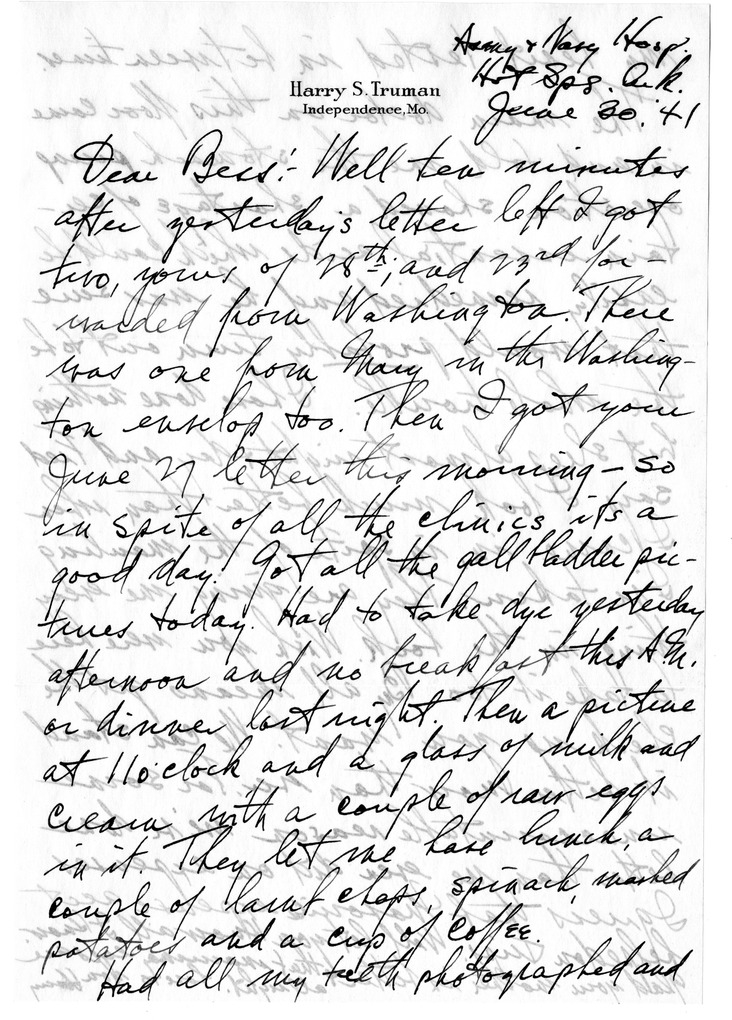 Army & Navy Hosp.
Hot Spgs. Ark.
June 30, 41
Harry S. Truman
Independence, Mo.
Dear Bess:- Well ten minutes
after yesterday's letter left I got
two, yours of 28th, and 23rd for-
warded from Washington. There
was one from Mary in the Washing-
ton envelop too. Then I got your
June 27 letter this morning - so
in spite of all the clinics its a
good day. Got all the gall bladder pic-
tures today. Had to take dye yesterday
afternoon and no breakfast this A.M.
or dinner last night. Then a picture
at 11 o'clock and a glass of milk and
cream with a couple of raw eggs
in it. They let me have lunch, a
couple of lamb chops, spinach, mashed
potatoes and a cup of coffee.
Had all my teeth photographed and